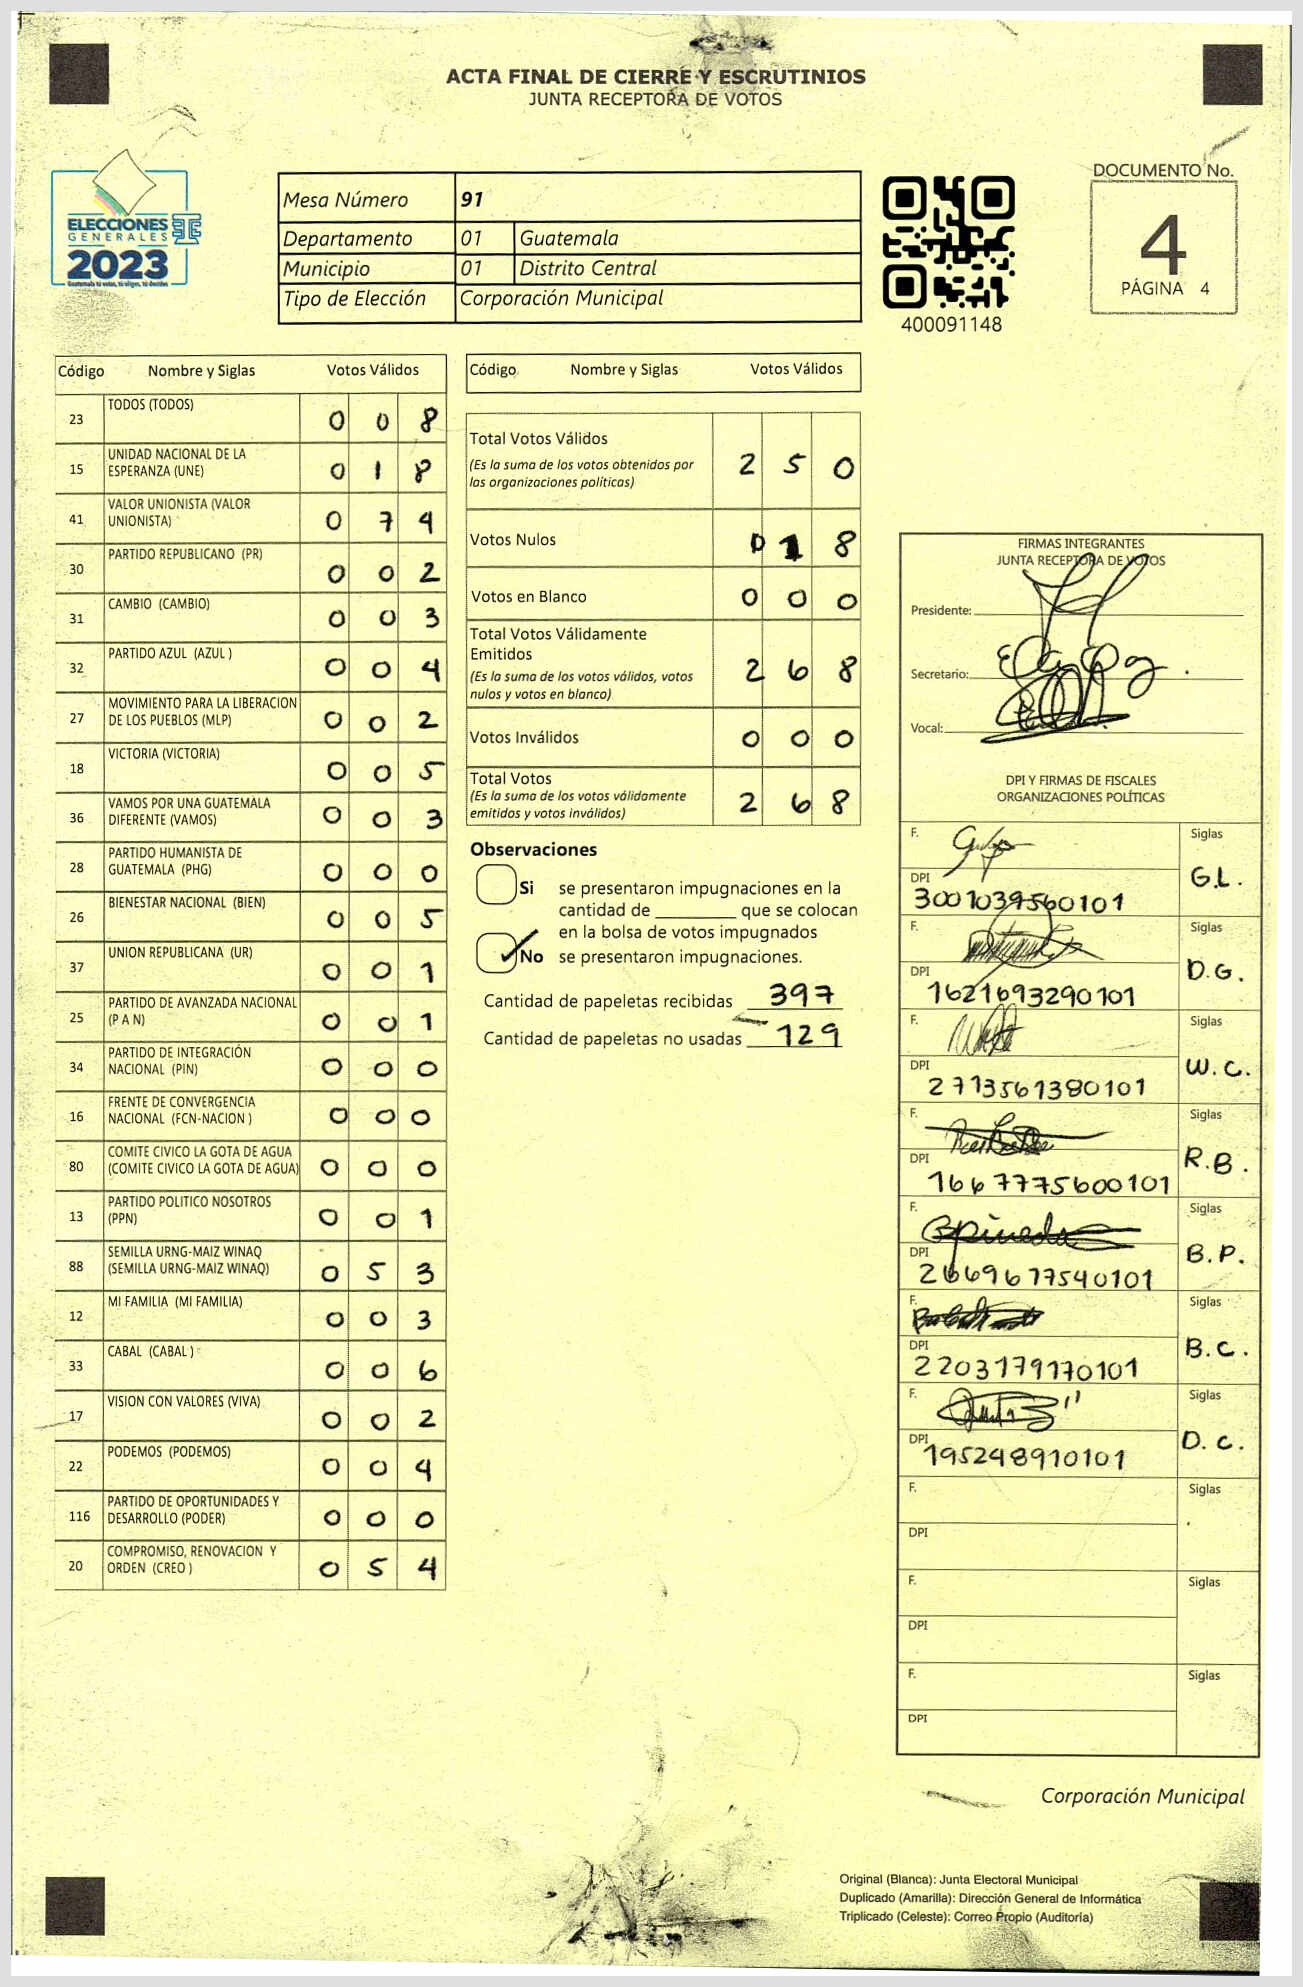 ACTA FINAL DE CIERRE Y ESCRUTINIOS
JUNTA RECEPTORA DE VOTOS
ELECCIONES
GENERALES
2023
Guatemala tú votas, tú eliges, tú decides
Mesa Número 91
Departamento 01 Guatemala
Municipio 01 Distrito Central
Tipo de Elección Corporación Municipal
400091148
DOCUMENTO No.
4
PÁGINA 4
Código Nombre y Siglas Votos Válidos
23 TODOS (TODOS) 0 0 8
15 UNIDAD NACIONAL DE LA
ESPERANZA (UNE) 0 1 8
41 VALOR UNIONISTA (VALOR
UNIONISTA) 0 7 4
30 PARTIDO REPUBLICANO (PR) 0 0 2
31 CAMBIO (CAMBIO) 0 0 3
32 PARTIDO AZUL (AZUL ) 0 0 4
27 MOVIMIENTO PARA LA LIBERACION
DE LOS PUEBLOS (MLP) 0 0 2
18 VICTORIA (VICTORIA) 0 0 5
36 VAMOS POR UNA GUATEMALA
DIFERENTE (VAMOS) 0 0 3
28 PARTIDO HUMANISTA DE
GUATEMALA (PHG) 0 0 0
26 BIENESTAR NACIONAL (BIEN) 0 0 5
37 UNION REPUBLICANA (UR) 0 0 1
25 PARTIDO DE AVANZADA NACIONAL
(P A N) 0 0 1
34 PARTIDO DE INTEGRACIÓN
NACIONAL (PIN) 0 0 0
16 FRENTE DE CONVERGENCIA
NACIONAL (FCN-NACION ) 0 0 0
80 COMITE CIVICO LA GOTA DE AGUA
(COMITE CIVICO LA GOTA DE AGUA) 0 0 0
13 PARTIDO POLITICO NOSOTROS
(PPN) 0 0 1
88 SEMILLA URNG-MAIZ WINAQ
(SEMILLA URNG-MAIZ WINAQ) 0 5 3
12 MI FAMILIA (MI FAMILIA) 0 0 3
33 CABAL (CABAL ) 0 0 6
17 VISION CON VALORES (VIVA) 0 0 2
22 PODEMOS (PODEMOS) 0 0 4
116 PARTIDO DE OPORTUNIDADES Y
DESARROLLO (PODER) 0 0 0
20 COMPROMISO, RENOVACION Y
ORDEN (CREO ) 0 5 4
Código Nombre y Siglas Votos Válidos
Total Votos Válidos
(Es la suma de los votos obtenidos por
las organizaciones políticas) 2 5 0
Votos Nulos 0 1 8
Votos en Blanco 0 0 0
Total Votos Válidamente
Emitidos
(Es la suma de los votos válidos, votos
nulos y votos en blanco) 2 6 8
Votos Inválidos 0 0 0
Total Votos
(Es la suma de los votos válidamente
emitidos y votos inválidos) 2 6 8
Observaciones
Si se presentaron impugnaciones en la
cantidad de ________ que se colocan
en la bolsa de votos impugnados
No se presentaron impugnaciones.
Cantidad de papeletas recibidas 397
Cantidad de papeletas no usadas 129
FIRMAS INTEGRANTES
JUNTA RECEPTORA DE VOTOS
Presidente:
Secretario:
Vocal:
DPI Y FIRMAS DE FISCALES
ORGANIZACIONES POLÍTICAS
F. Siglas
DPI G.L.
3001039560101
F. Siglas
DPI D.G.
1621693290101
F. Siglas
DPI W.C.
2713561380101
F. Siglas
DPI R.B.
1667775600101
F. Siglas
DPI B.P.
2669677540101
F. Siglas
DPI B.C.
2203179170101
F. Siglas
DPI D.C.
195248910101
F. Siglas
DPI
F. Siglas
DPI
F. Siglas
DPI
Corporación Municipal
Original (Blanca): Junta Electoral Municipal
Duplicado (Amarilla): Dirección General de Informática
Triplicado (Celeste): Correo Propio (Auditoría)